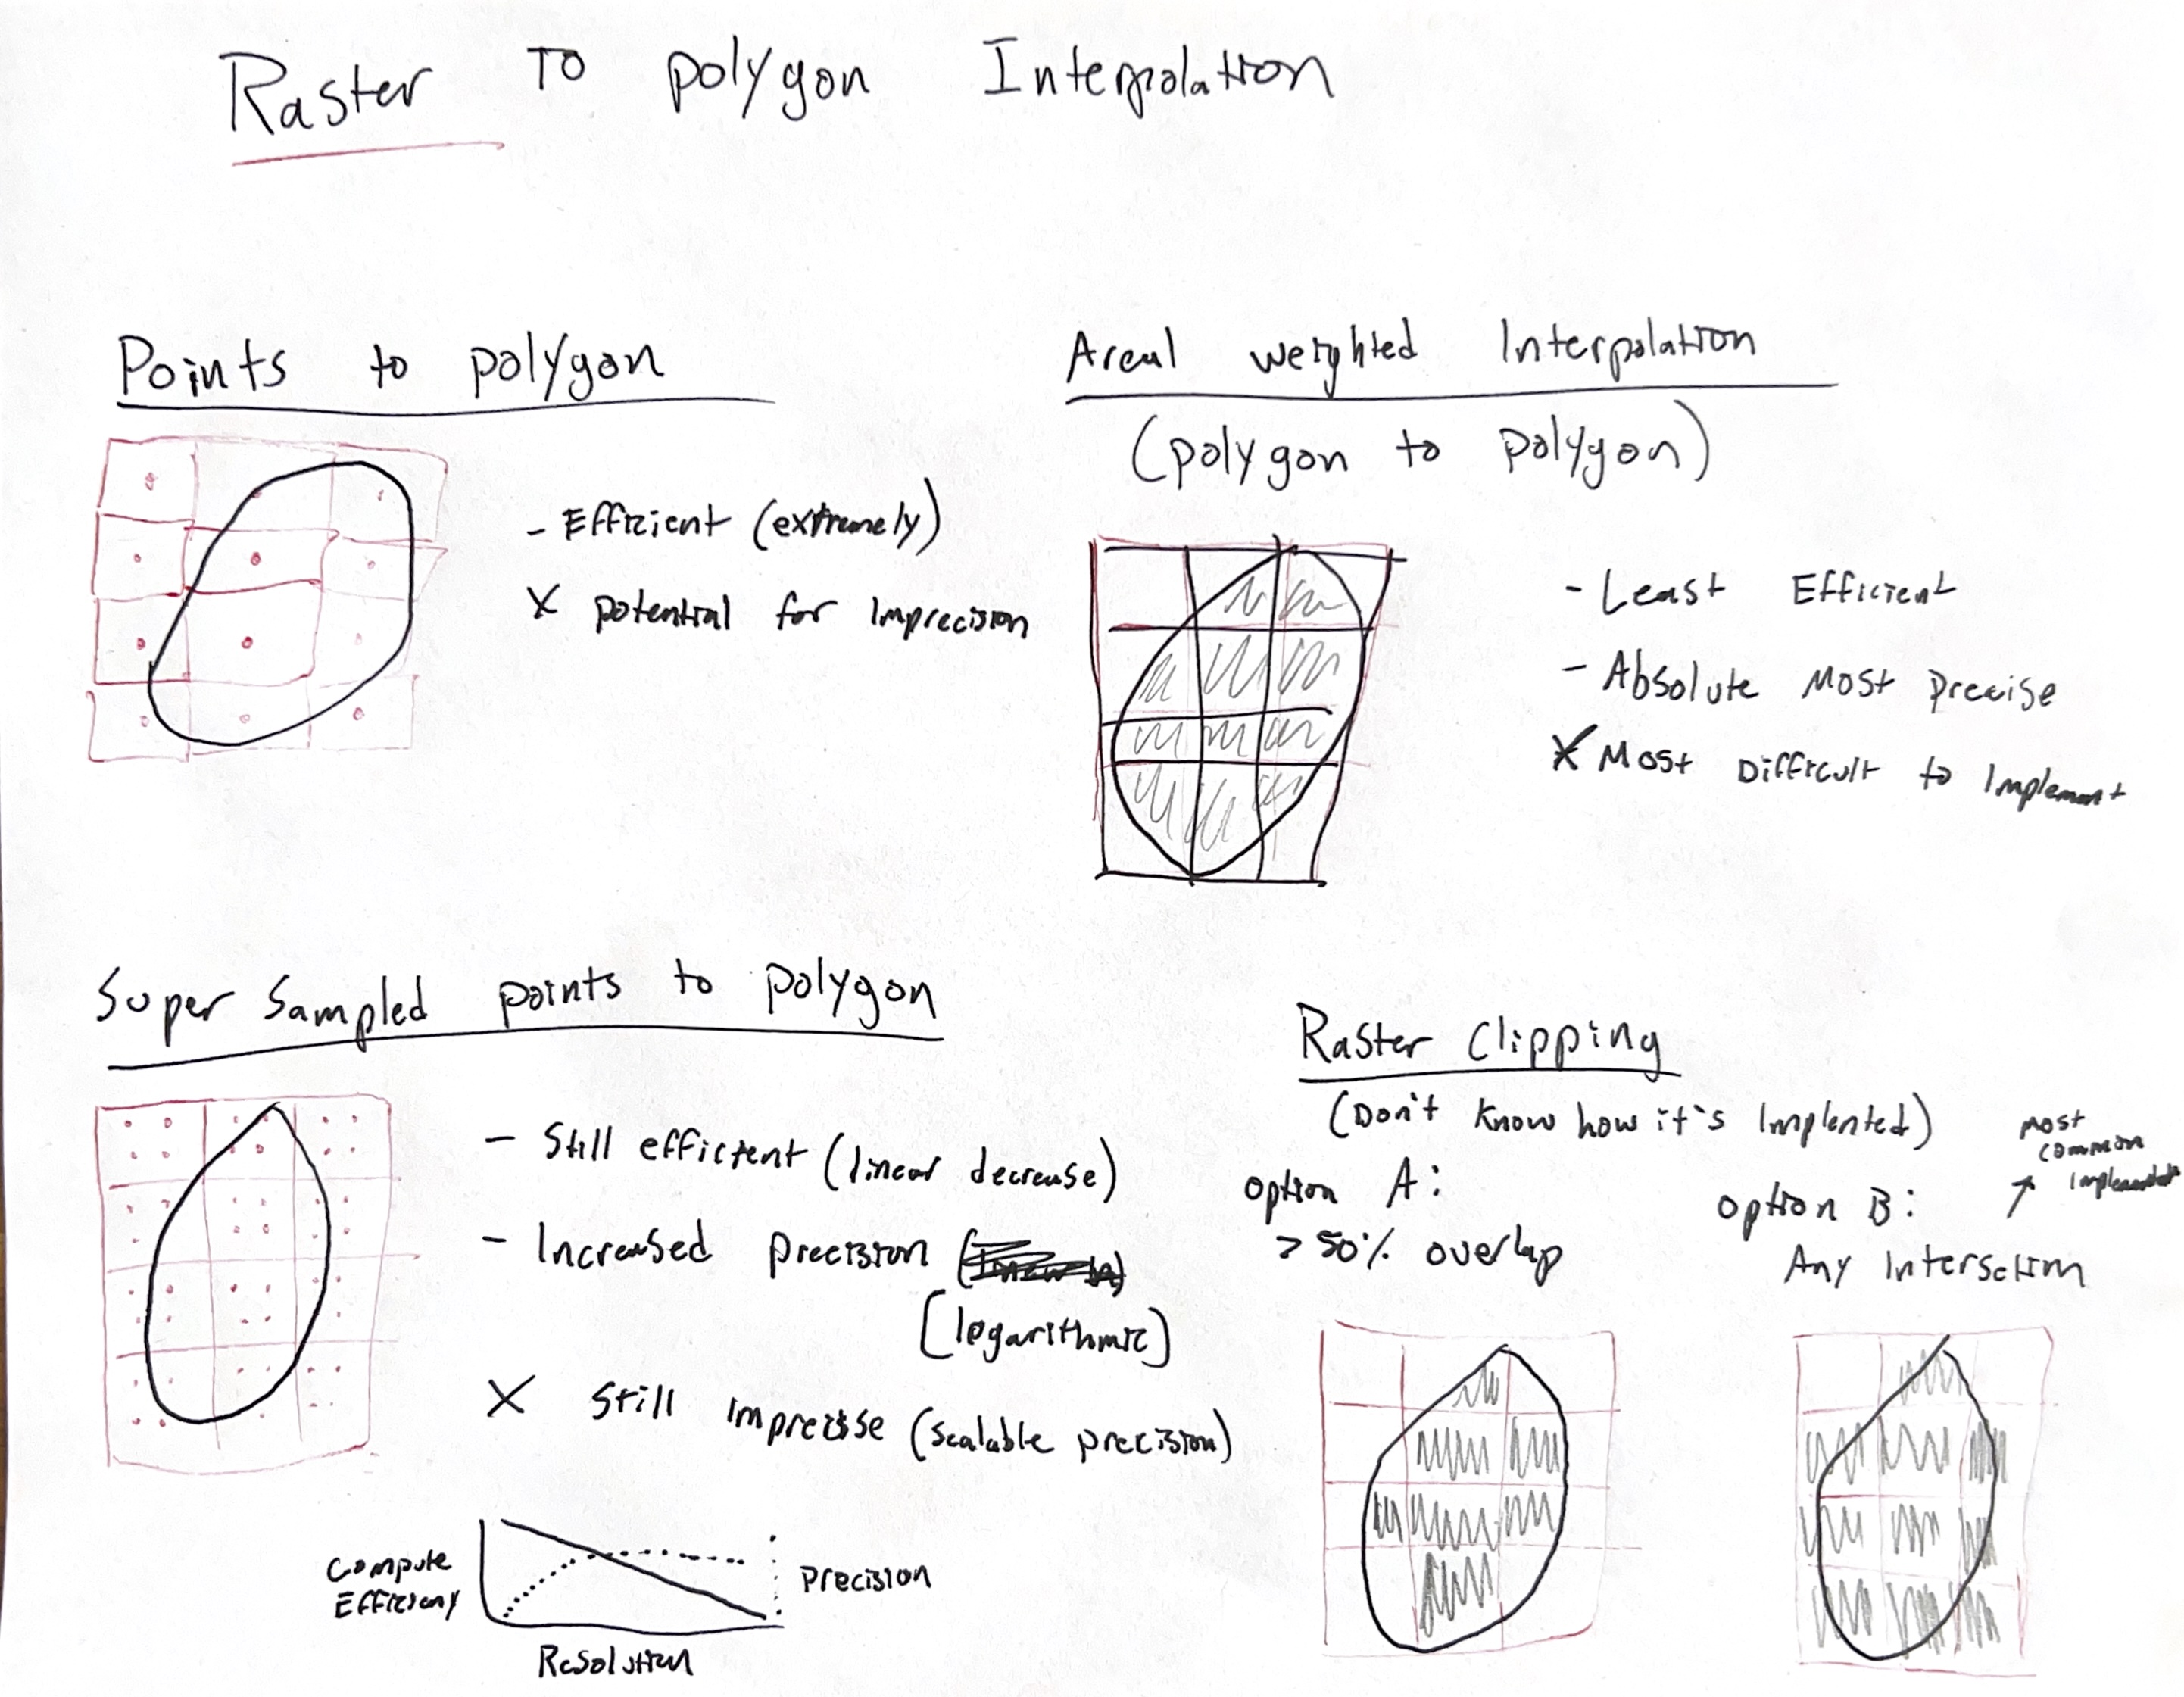 Raster To polygon Interpolation
Points to polygon
- Efficient (extremely)
X potential for Imprecision
Areal weighted Interpolation
(polygon to polygon)
- Least Efficient
- Absolute Most Precise
X Most Difficult to Implement
Super Sampled points to polygon
- Still efficient (linear decrease)
- Increased Precision
[logarithmic]
X Still Imprecise (scalable precision)
Compute
Efficiency
Precision
Resolution
Raster Clipping
(Don't Know how it's Implented)
option A:
> 50% overlap
most
common
option B:
Any Intersection